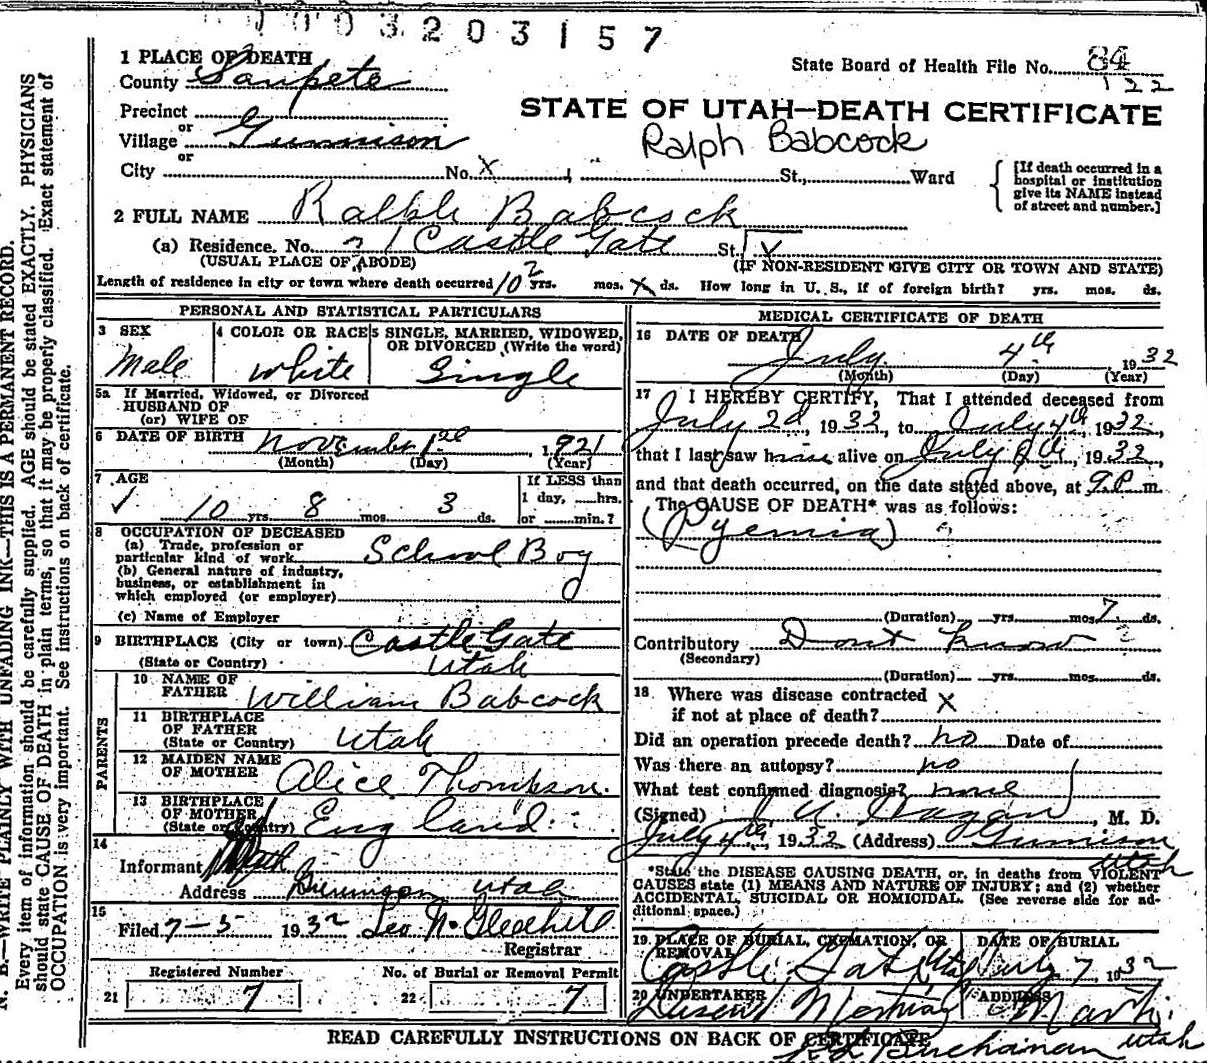 0003203157
1 PLACE OF DEATH
County Sanpete
State Board of Health File No. 84
122
Precinct
or
Village Gunnison
or
City No. X St., Ward
STATE OF UTAH—DEATH CERTIFICATE
Ralph Babcock
[If death occurred in a hospital or institution give its NAME instead of street and number.]
2 FULL NAME Ralph Babcock
(a) Residence. No. Castle Gate St.
(USUAL PLACE OF ABODE) (IF NON-RESIDENT GIVE CITY OR TOWN AND STATE)
Length of residence in city or town where death occurred 10 yrs. mos. X ds. How long in U. S., if of foreign birth? yrs. mos. ds.
PERSONAL AND STATISTICAL PARTICULARS
3 SEX
Male
4 COLOR OR RACE
White
5 SINGLE, MARRIED, WIDOWED, OR DIVORCED (Write the word)
Single
5a If Married, Widowed, or Divorced
HUSBAND OF
(or) WIFE OF
6 DATE OF BIRTH November 1921
(Month) (Day) (Year)
7 AGE
10 yrs. 8 mos. 3 ds.
If LESS than
1 day, hrs.
or min.?
8 OCCUPATION OF DECEASED
(a) Trade, profession or
particular kind of work School Boy
(b) General nature of industry,
business, or establishment in
which employed (or employer)
(c) Name of Employer
9 BIRTHPLACE (City or town) Castle Gate
(State or Country) Utah
PARENTS
10 NAME OF
FATHER William Babcock
11 BIRTHPLACE
OF FATHER
(State or Country) Utah
12 MAIDEN NAME
OF MOTHER Alice Thompson.
13 BIRTHPLACE
OF MOTHER
(State or Country) England
14
Informant
Address Gunnison Utah
15
Filed 7-5 1932 Leo N. Gledhill
Registrar
Registered Number
21 7
No. of Burial or Removal Permit
22 7
MEDICAL CERTIFICATE OF DEATH
16 DATE OF DEATH
July 4th 1932
(Month) (Day) (Year)
17 I HEREBY CERTIFY, That I attended deceased from
July 2d, 1932, to July 4th, 1932,
that I last saw him alive on July 4th, 1932,
and that death occurred, on the date stated above, at 9 P. m.
The CAUSE OF DEATH* was as follows:
(Pyemia)
(Duration) yrs. mos. 7 ds.
Contributory Dont know
(Secondary)
(Duration) yrs. mos. ds.
18 Where was disease contracted
if not at place of death? X
Did an operation precede death? no Date of
Was there an autopsy? no
What test confirmed diagnosis? none
(Signed) Hagan, M. D.
July 4th, 1932 (Address) Gunnison
Utah
*State the DISEASE CAUSING DEATH, or, in deaths from VIOLENT
CAUSES state (1) MEANS AND NATURE OF INJURY; and (2) whether
ACCIDENTAL, SUICIDAL OR HOMICIDAL. (See reverse side for additional space.)
19 PLACE OF BURIAL, CREMATION, OR REMOVAL
Castle Gate Utah
DATE OF BURIAL
July 7, 1932
20 UNDERTAKER
ADDRESS
Manti
Utah
Buchanan
READ CAREFULLY INSTRUCTIONS ON BACK OF CERTIFICATE
N. B.—WRITE PLAINLY WITH UNFADING INK—THIS IS A PERMANENT RECORD.
Every item of information should be carefully supplied. AGE should be stated EXACTLY. PHYSICIANS
should state CAUSE OF DEATH in plain terms, so that it may be properly classified. Exact statement of
OCCUPATION is very important. See instructions on back of certificate.